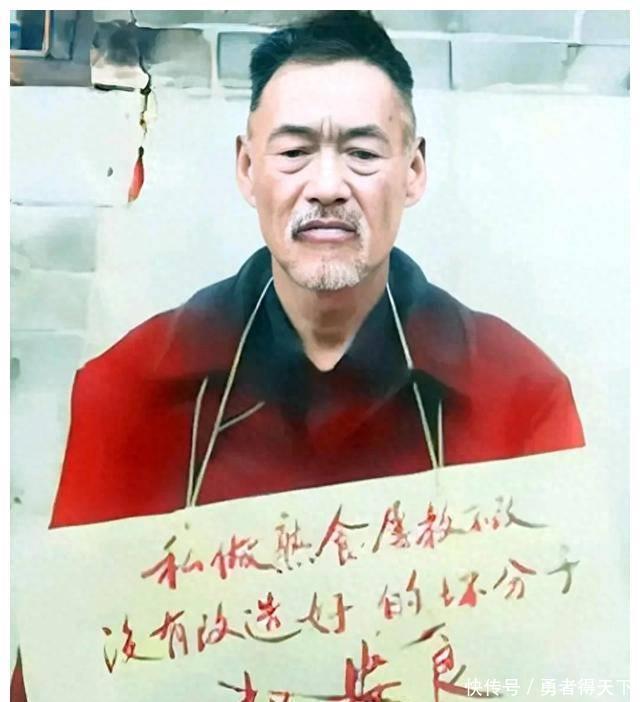 私做熟食屡教不改
没有改造好的坏分子
世良
快传号/勇者得天下